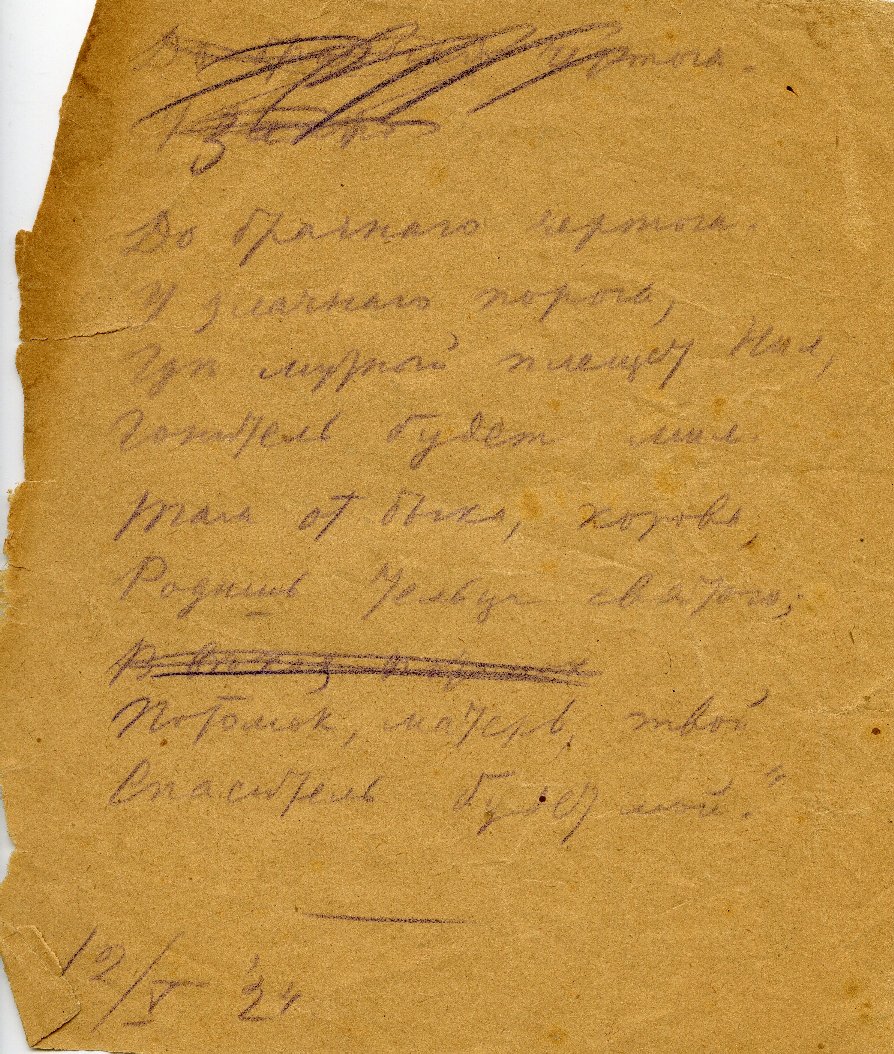 До чертога.
До брачнаго чертога.
У злачнаго порога,
Гдѣ мутный плещет Нил,
Гонитель будет мил.
Тогда от быка, корова,
Родишь тельца святого;
Потомок, матерь, твой
Спаситель будет мой."
12/V 24